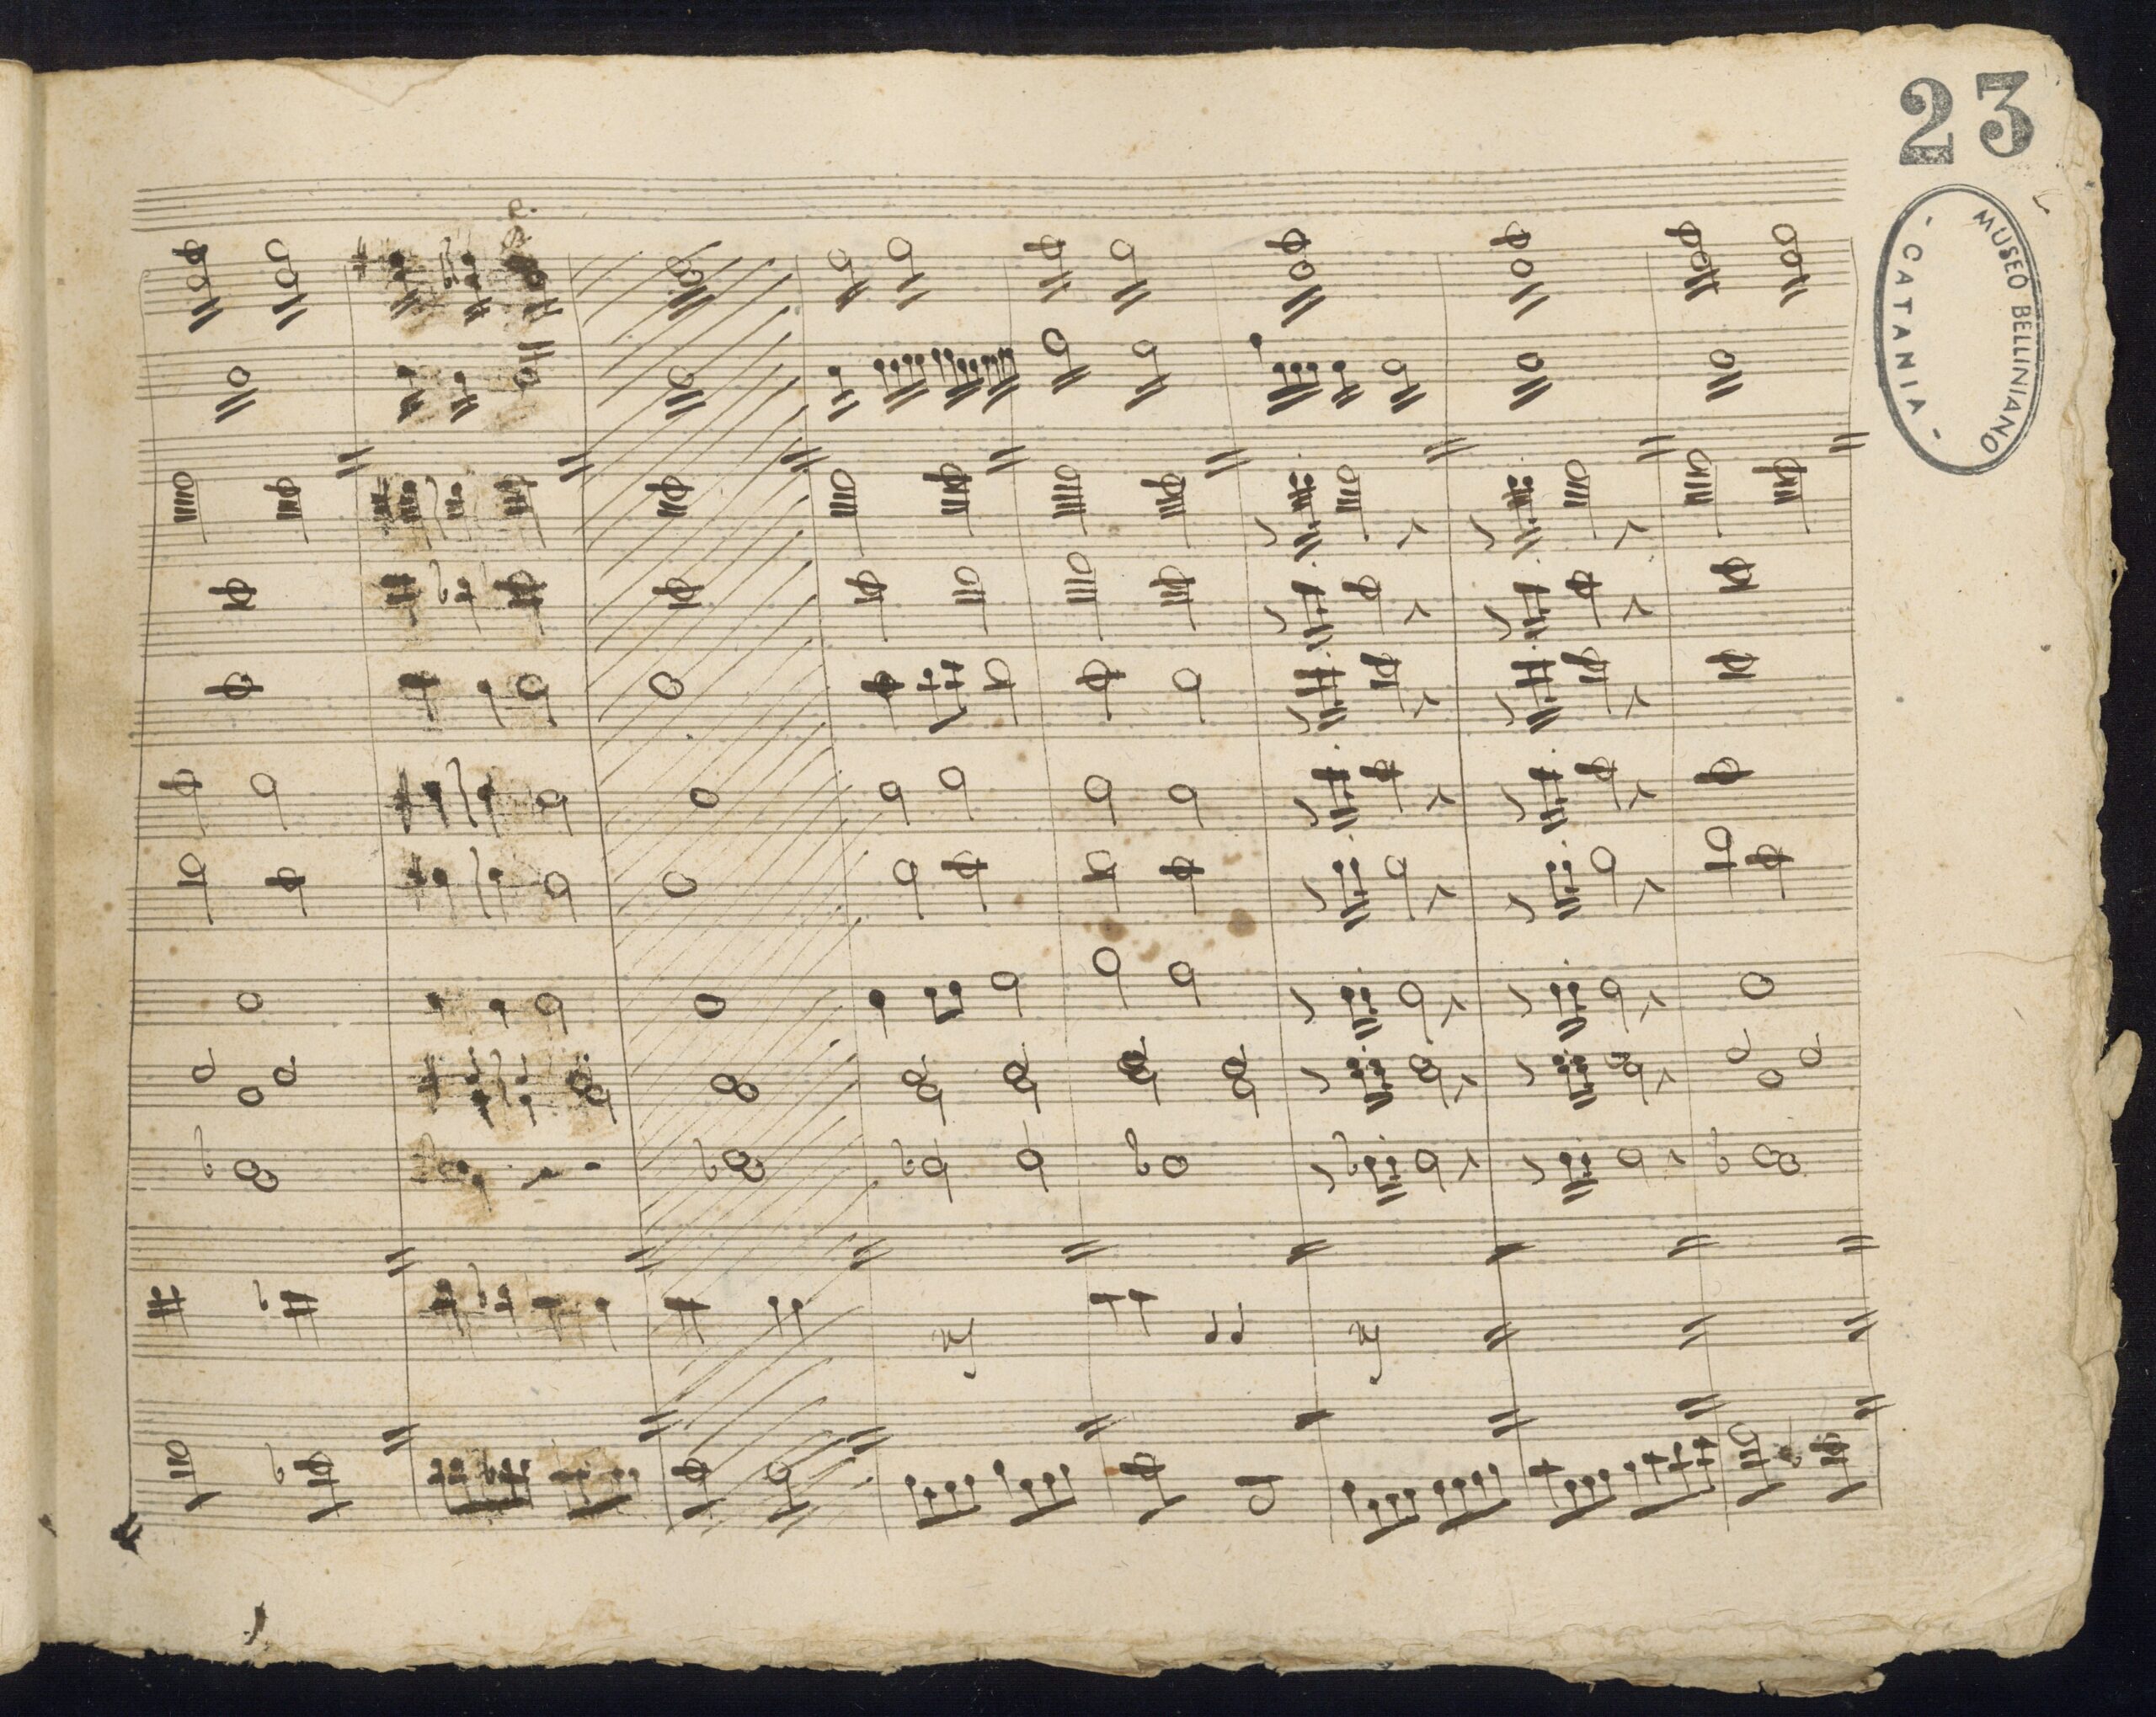 23
MUSEO BELLINIANO
- CATANIA -